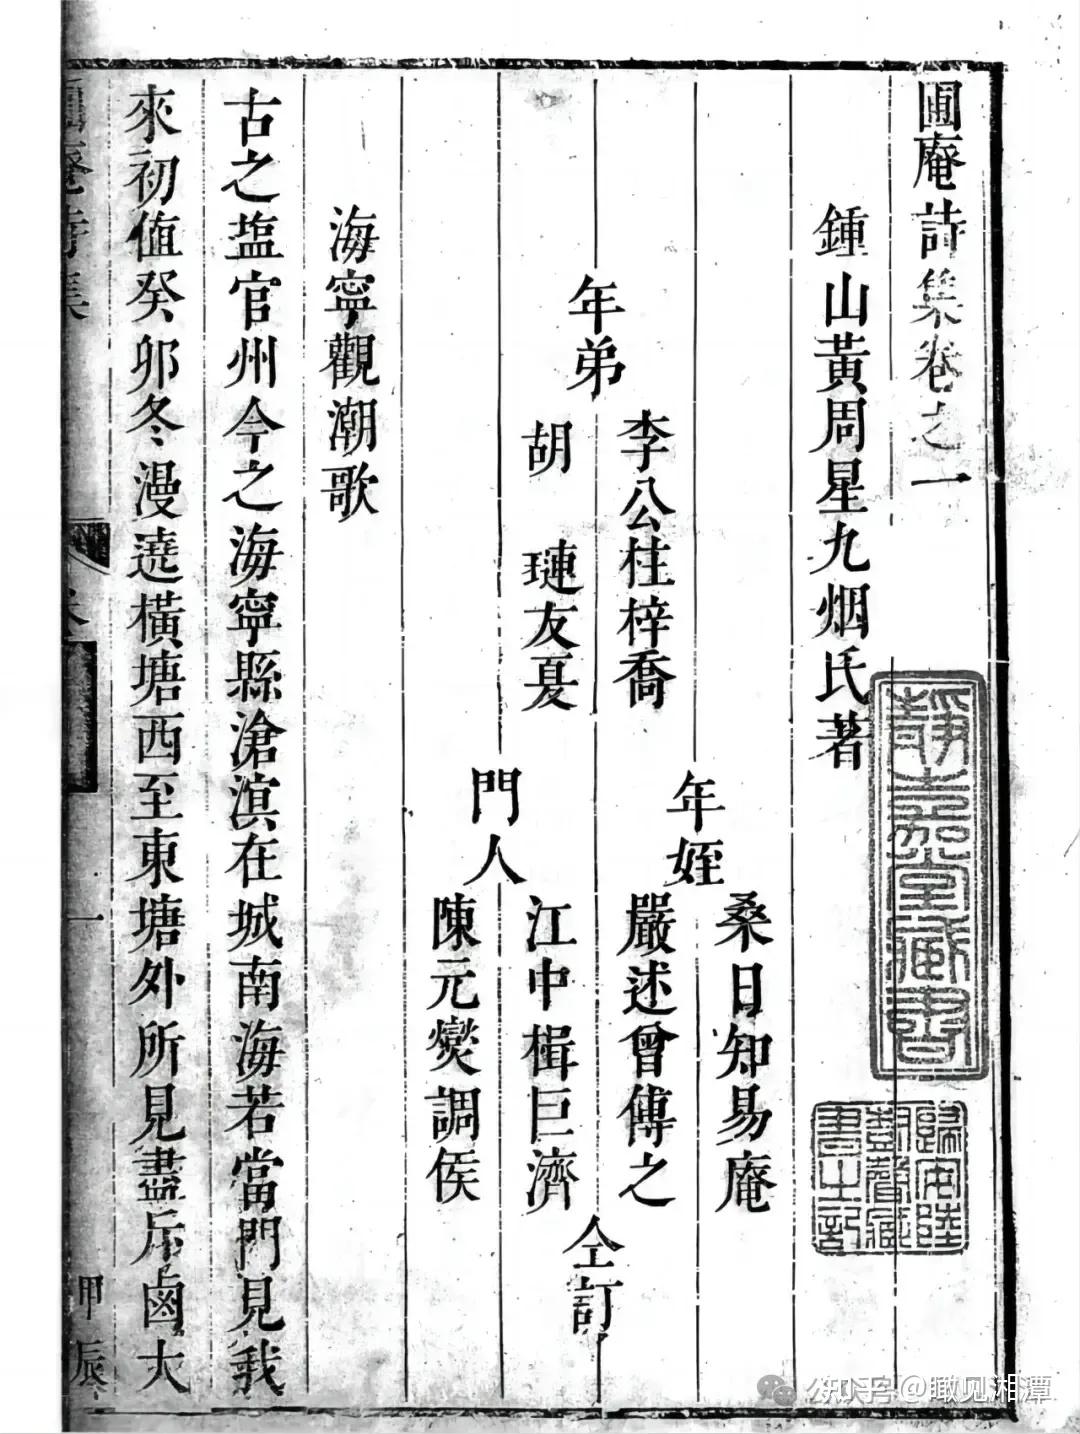 圃庵詩集卷之一
鍾山黃周星九烟氏著
年姪
桑日知易庵
嚴述曾傅之
年弟
李公柱梓喬
胡璉友夏
門人
江中楫巨濟
陳元爕調侯
仝訂
海寧觀潮歌
古之塩官州今之海寧縣滄溟在城南海若當門見我
來初值癸卯冬漫遶橫塘西至東塘外所見盡斥鹵大
庵詩集
卷
一
甲辰
靜壺室藏書
歸安陸
樹聲藏
書之記
公知乎 @瞰见湘潭